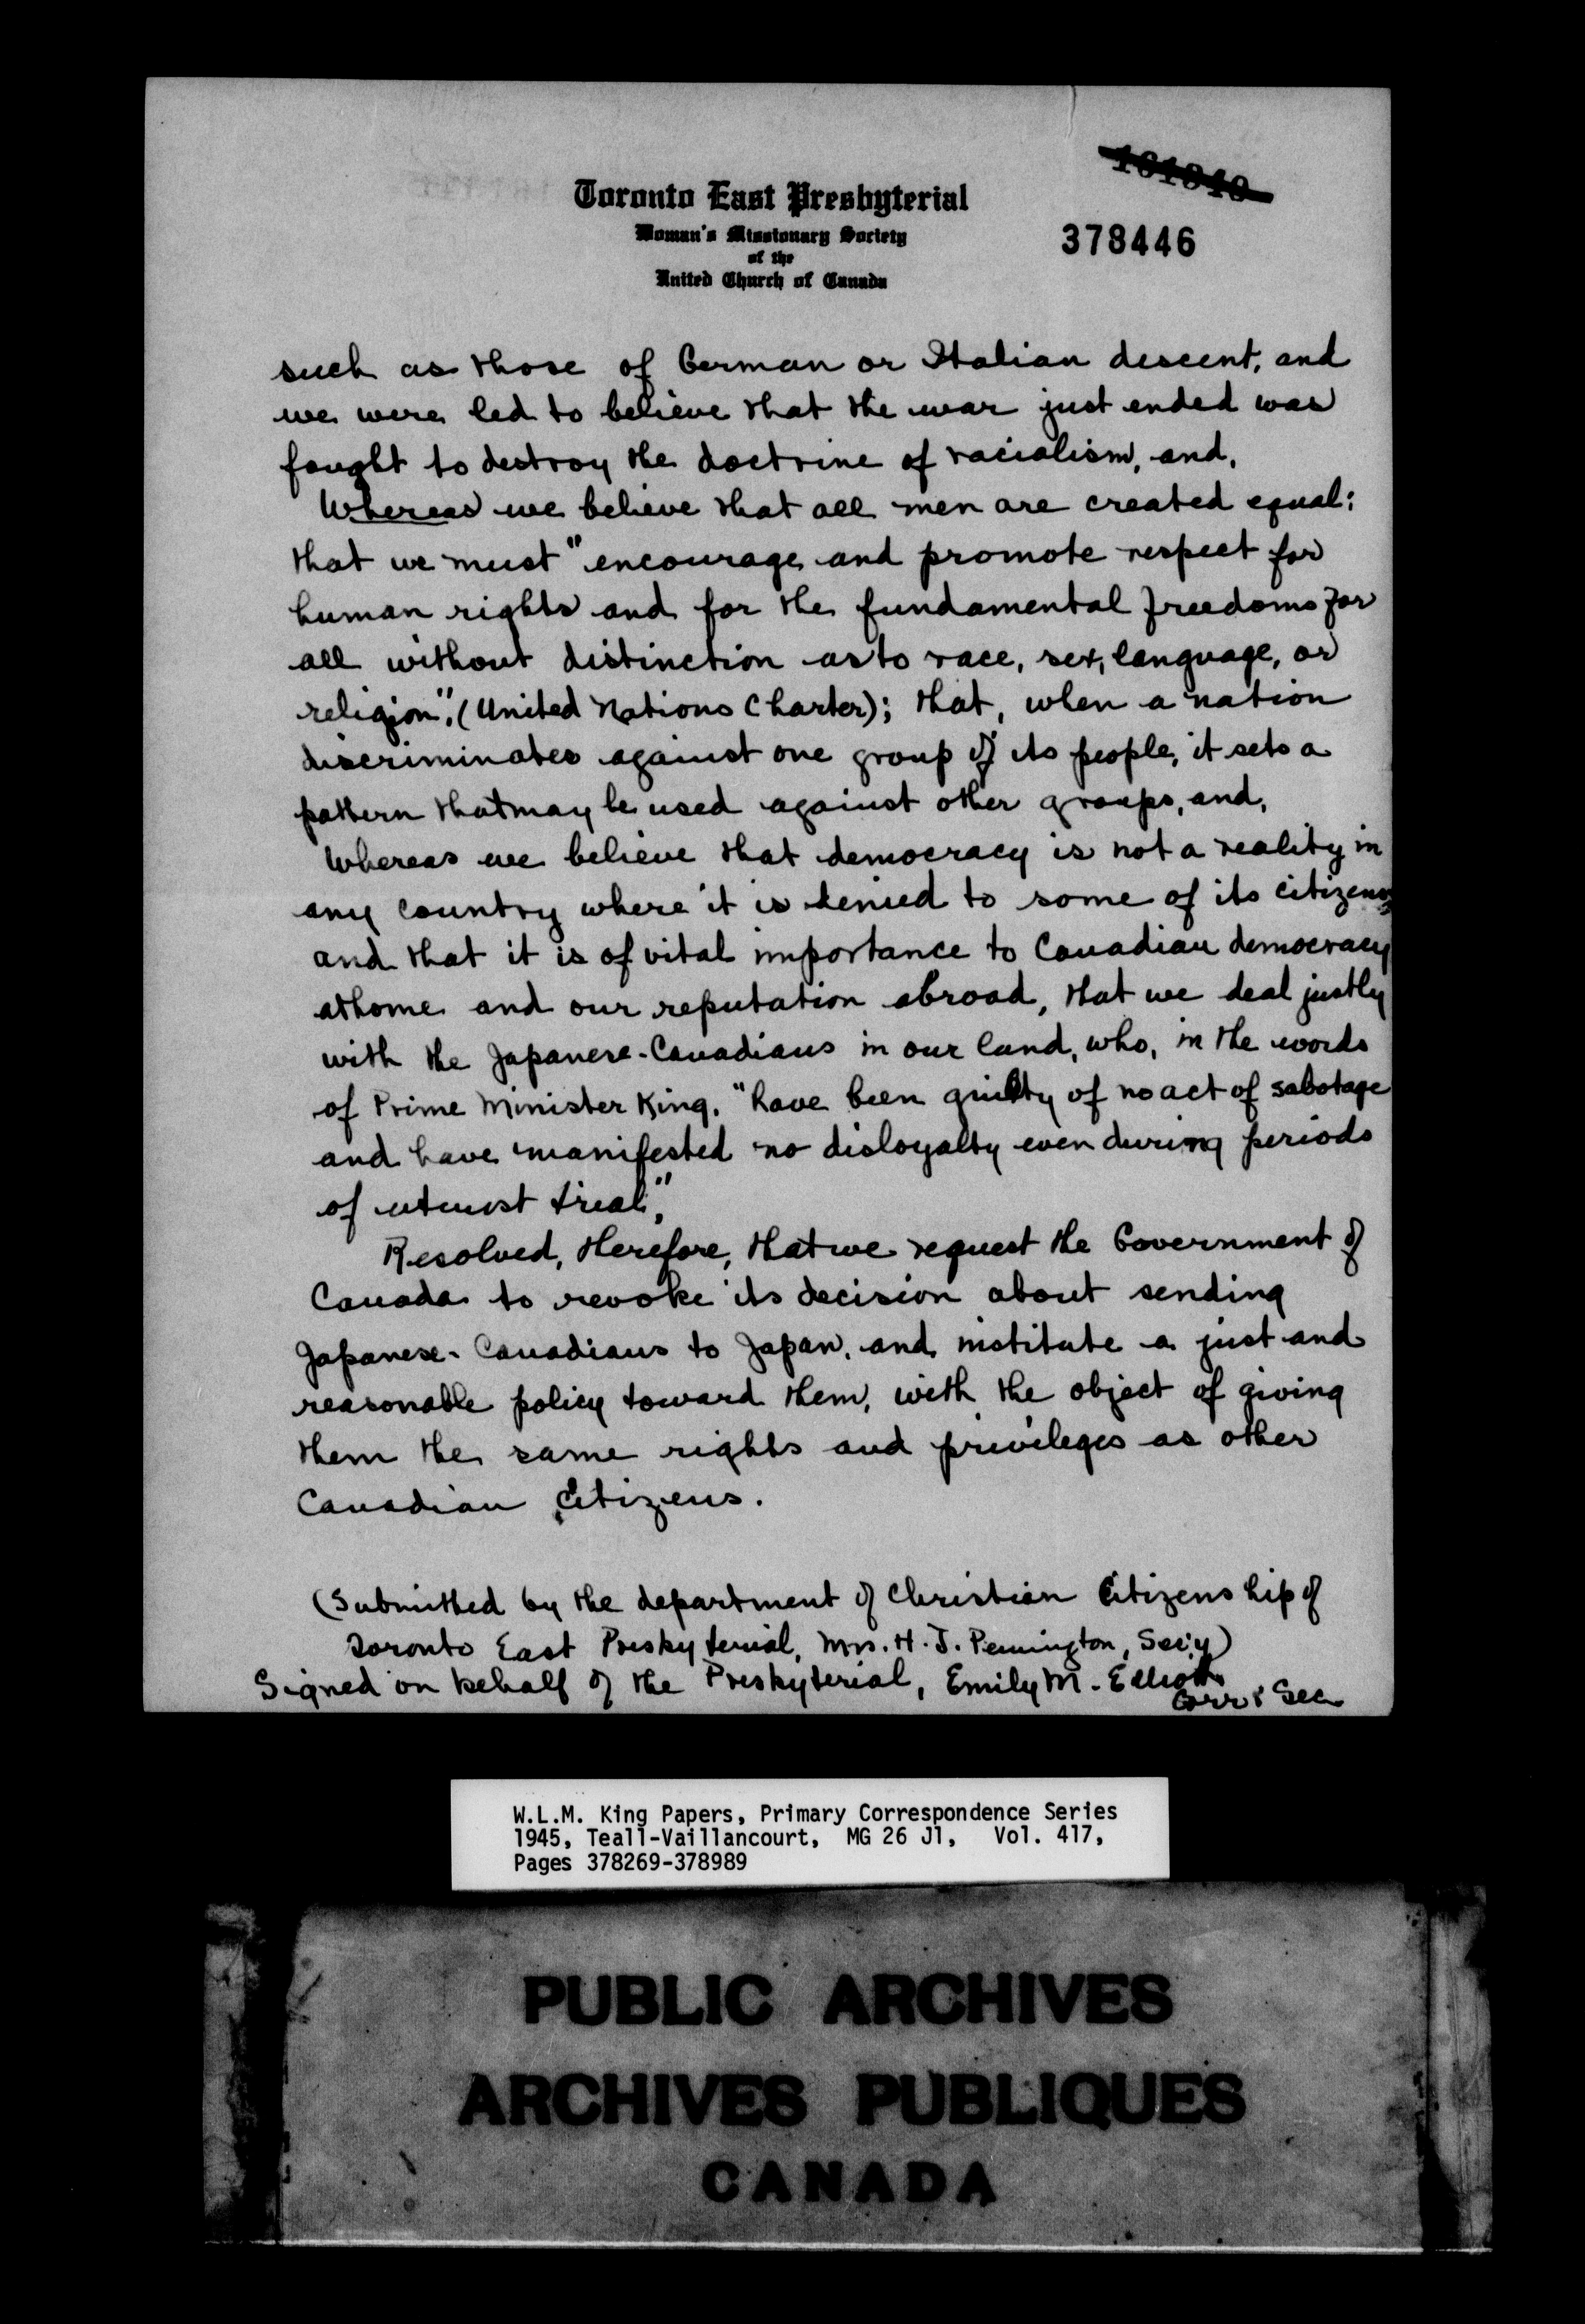 161940
Toronto East Presbyterial
Woman's Missionary Society
of the
United Church of Canada
378446
such as those of German or Italian descent, and
we were led to believe that the war just ended was
fought to destroy the doctrine of racialism, and,
Whereas we believe that all men are created equal:
that we must "encourage and promote respect for
human rights and for the fundamental freedoms for
all without distinction as to race, sex, language, or
religion", (United Nations Charter); that, when a nation
discriminates against one group of its people, it sets a
pattern that may be used against other groups, and,
Whereas we believe that democracy is not a reality in
any country where it is denied to some of its citizens,
and that it is of vital importance to Canadian democracy
at home and our reputation abroad, that we deal justly
with the Japanese-Canadians in our land, who, in the words
of Prime Minister King, "have been guilty of no act of sabotage
and have manifested no disloyalty even during periods
of utmost trial",
Resolved, therefore, that we request the Government of
Canada to revoke its decision about sending
Japanese-Canadians to Japan, and institute a just and
reasonable policy toward them, with the object of giving
them the same rights and privileges as other
Canadian Citizens.
(Submitted by the department of Christian Citizenship of
Toronto East Presbyterial, Mrs. H. J. Pennington, Sec'y)
Signed on behalf of the Presbyterial, Emily M. Elliott
Corr. Sec
W.L.M. King Papers, Primary Correspondence Series
1945, Teall-Vaillancourt, MG 26 J1, Vol. 417,
Pages 378269-378989
PUBLIC ARCHIVES
ARCHIVES PUBLIQUES
CANADA